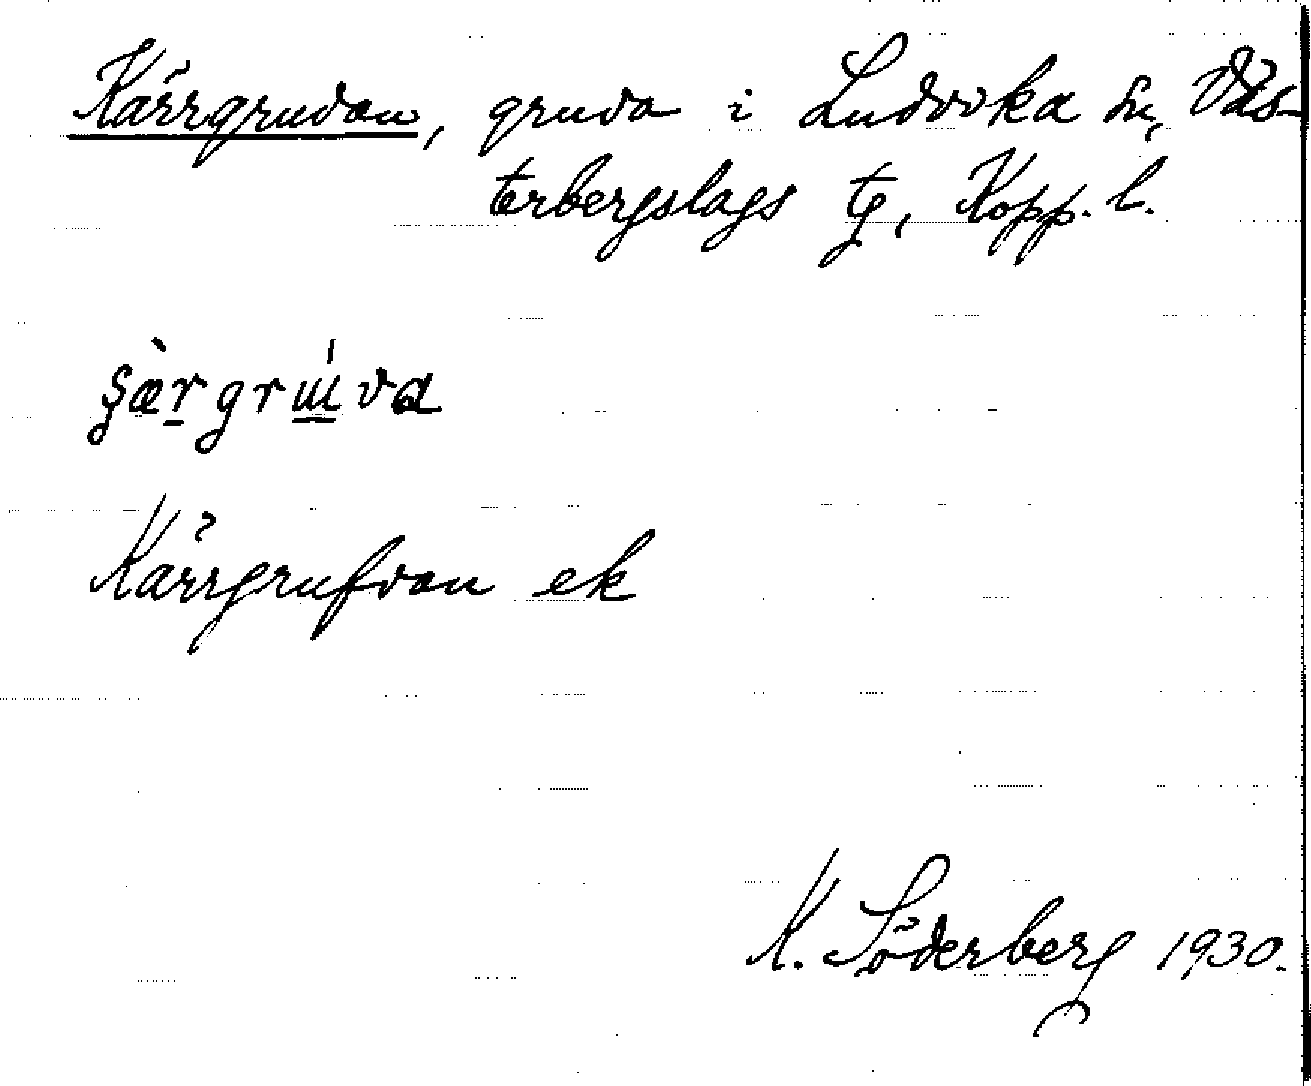 Kärrgruvan, gruva i Ludvika sn, Väs-
terbergslags tg, Kopp. l.
Kärrgrufvan ek
K. Söderberg 1930.